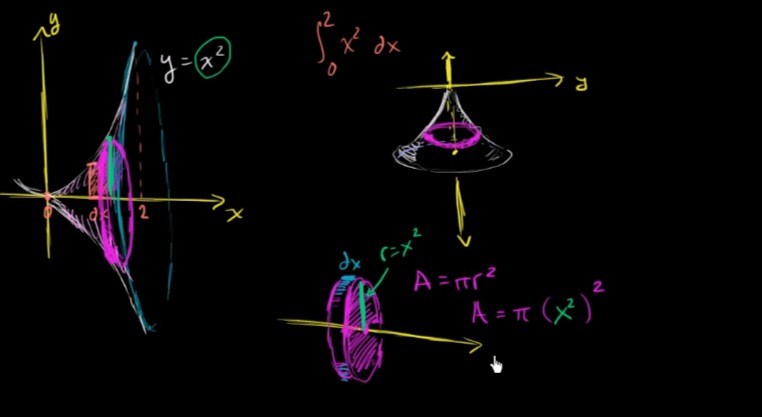 y
y = x²
∫₀² x² dx
y
0
dx
2
x
dx
r=x²
A = πr²
A = π (x²)²